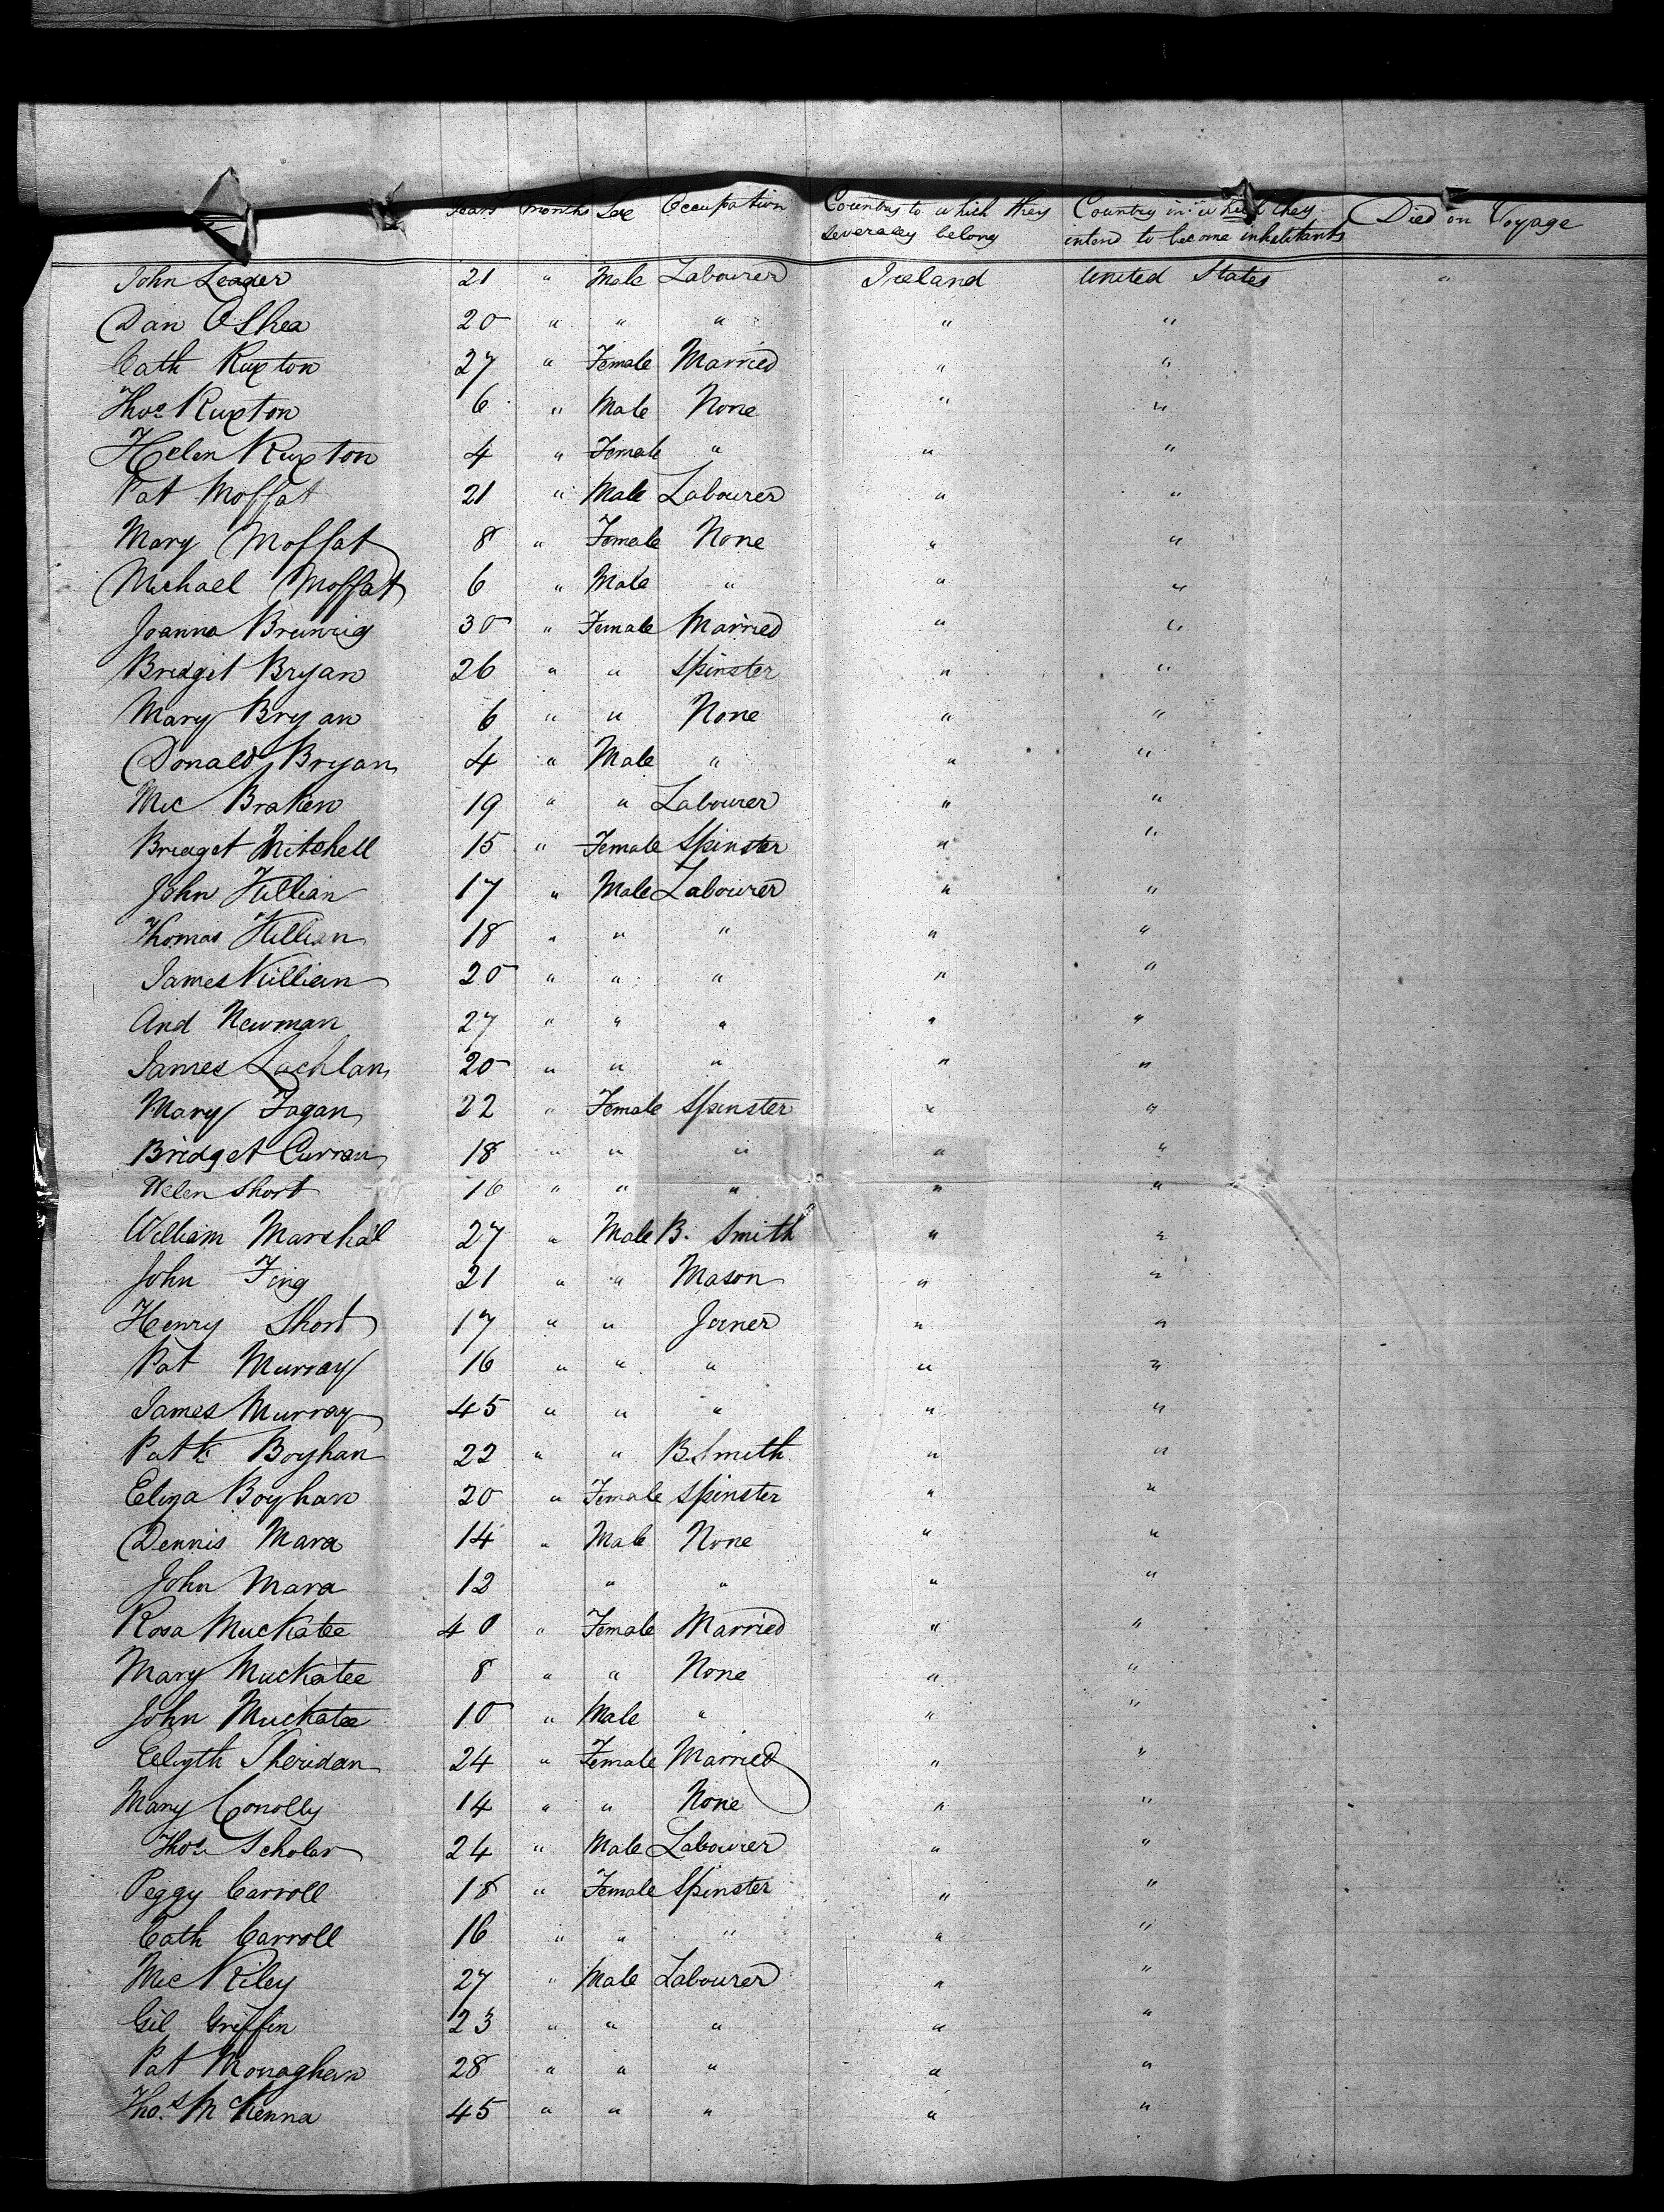 Years months Sex Occupation Country to which they severaly belong Country in which they intend to become inhabitants Died on Voyage
John Leader 21 " Male Labourer Ireland United States "
Dan OShea 20 " " " " "
Cath Ruxton 27 " Female Married " "
Thos Ruxton 6 " Male None " "
Helen Ruxton 4 " Female " " "
Pat Moffat 21 " Male Labourer " "
Mary Moffat 8 " Female None " "
Michael Moffat 6 " Male " " "
Joanna 30 " Female Married " "
Bridget Bryan 26 " " Spinster " "
Mary Bryan 6 " " None " "
Donald Bryan 4 " Male " " "
Mic Braken 19 " " Labourer " "
Bridget Mitchell 15 " Female Spinster " "
John Killian 17 " Male Labourer " "
Thomas Killian 18 " " " " "
James Killian 20 " " " " "
And Newman 27 " " " " "
James Lachlan 20 " " " " "
Mary Fagan 22 " Female Spinster " "
Bridget Curran 18 " " " " "
Helen Short 16 " " " " "
William Marshal 27 " Male B. Smith " "
John Fing 21 " " Mason " "
Henry Short 17 " " Joiner " "
Pat Murray 16 " " " " "
James Murray 45 " " " " "
Patk Boyhan 22 " " B. Smith " "
Eliza Boyhan 20 " Female Spinster " "
Dennis Mara 14 " Male None " "
John Mara 12 " " " "
Rosa Muckatee 40 " Female Married " "
Mary Muckatee 8 " " None " "
John Muckatee 10 " Male " " "
Elizth Sheridan 24 " Female Married " "
Mary Conolly 14 " " None " "
Thos Scholar 24 " Male Labourer " "
Peggy Carroll 18 " Female Spinster " "
Cath Carroll 16 " " " " "
Mic Riley 27 " Male Labourer " "
Gil Griffin 23 " " " " "
Pat Monaghan 28 " " " " "
Thos McKenna 45 " " " " "